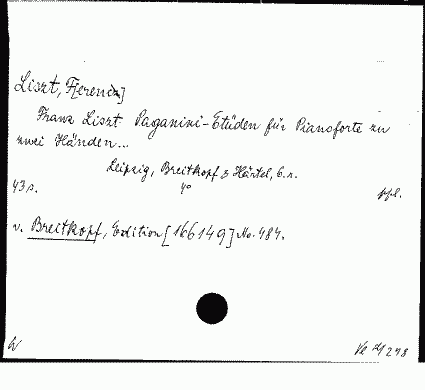 Liszt, F[erenc]
Franz Liszt Paganini-Etüden für Pianoforte zu
zwei Händen...
Leipzig, Breitkopf & Härtel, é.n.
43 s. 4° ppl.
v. Breitkopf, Edition [166149] No. 484.